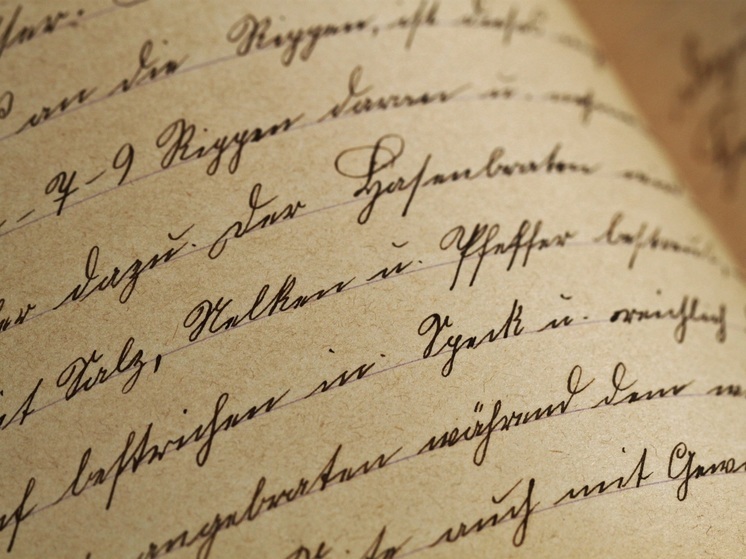 an die Rippen, ist dieses
7-9 Rippen daran u.
dazu. Der Hasenbraten
Salz, Nelken u. Pfeffer
bestrichen in Speck u. reichlich
angebraten während dem
auch mit